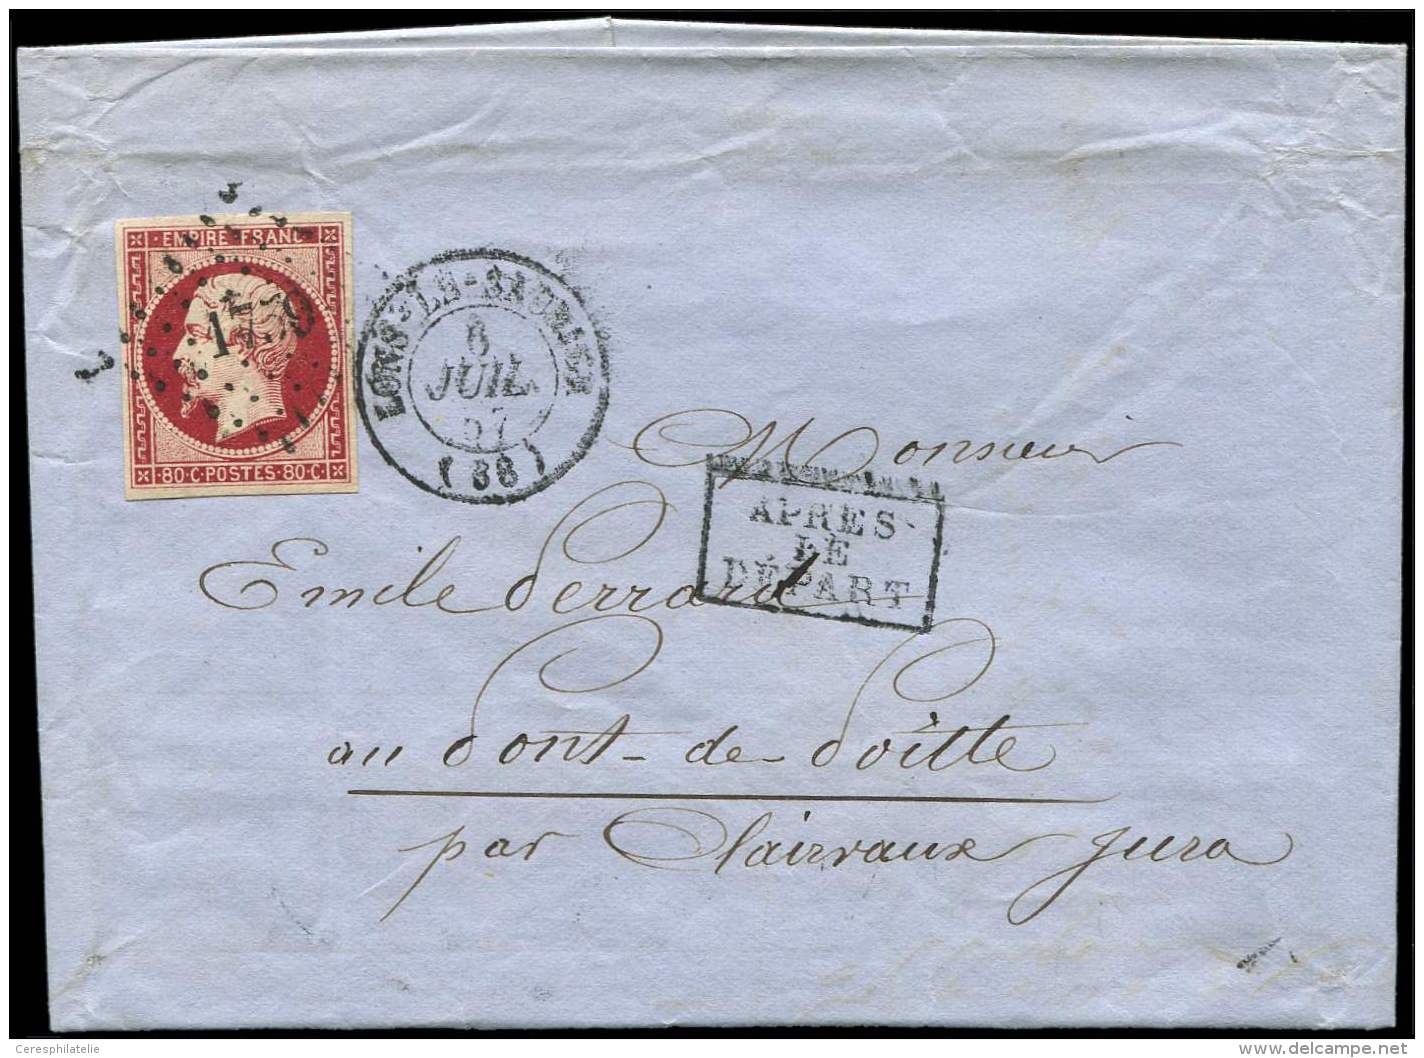 EMPIRE FRANC
80·C·POSTES·80·C·
LONS-LE-SAUNIER
6
JUIL.
57
Monsieur
APRÈS
LE
DÉPART
Emile Perrard
au Pont-de-Poitte
par Clairvaux Jura
Ceresphilatelie
www.delcampe.net